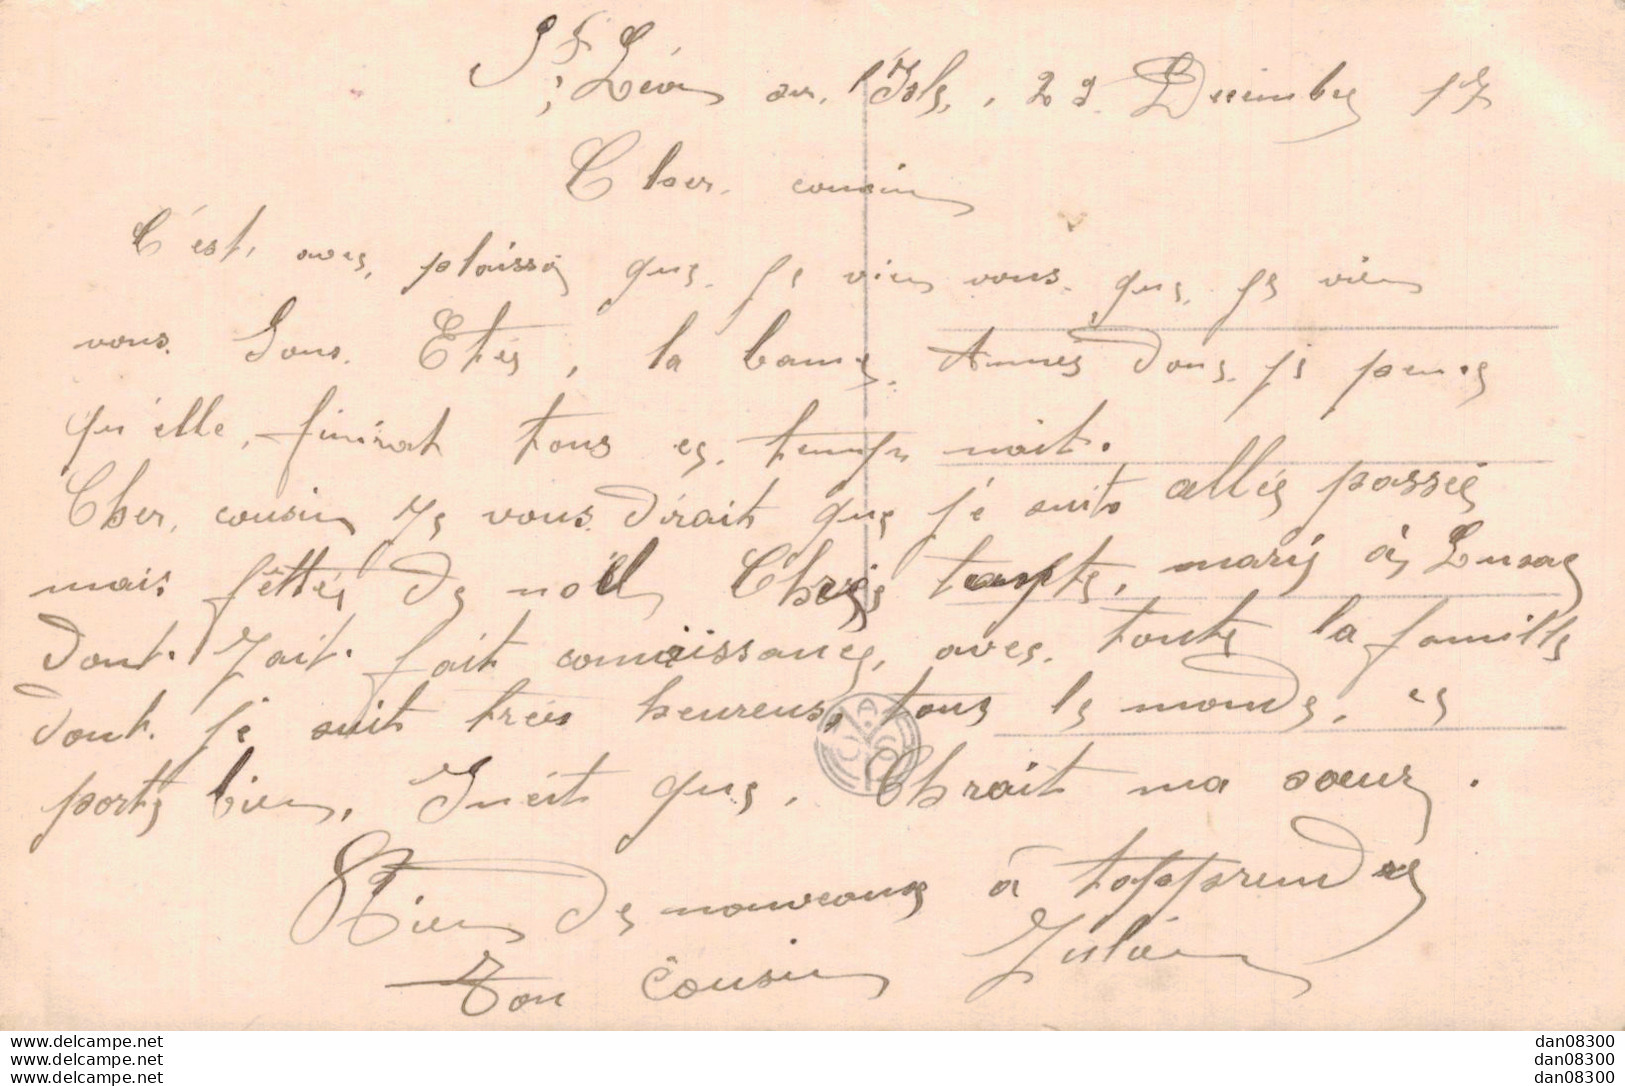 St Léon sur l'Isle, 29 Décembre 17
Cher cousin
C'est avec plaissir que je vien vous que je vien
vous Souéter, la bonne Année dons je pence
qu'elle finirat tous ce temps noit.
Cher cousin Je vous dirait que jé suits allée passée
mais fêttée de noël Chez tante, marie à Lusac
dont Jait fait connaissance, avec toute la famille
dont jé suit trées heureus tous le monde, ce
porte bien, Inéit que, Chrait ma soeur.
Rien de nouveaux à tapprendre
Ton cousin Juléin
www.delcampe.net
www.delcampe.net
www.delcampe.net
dan08300
dan08300
dan08300